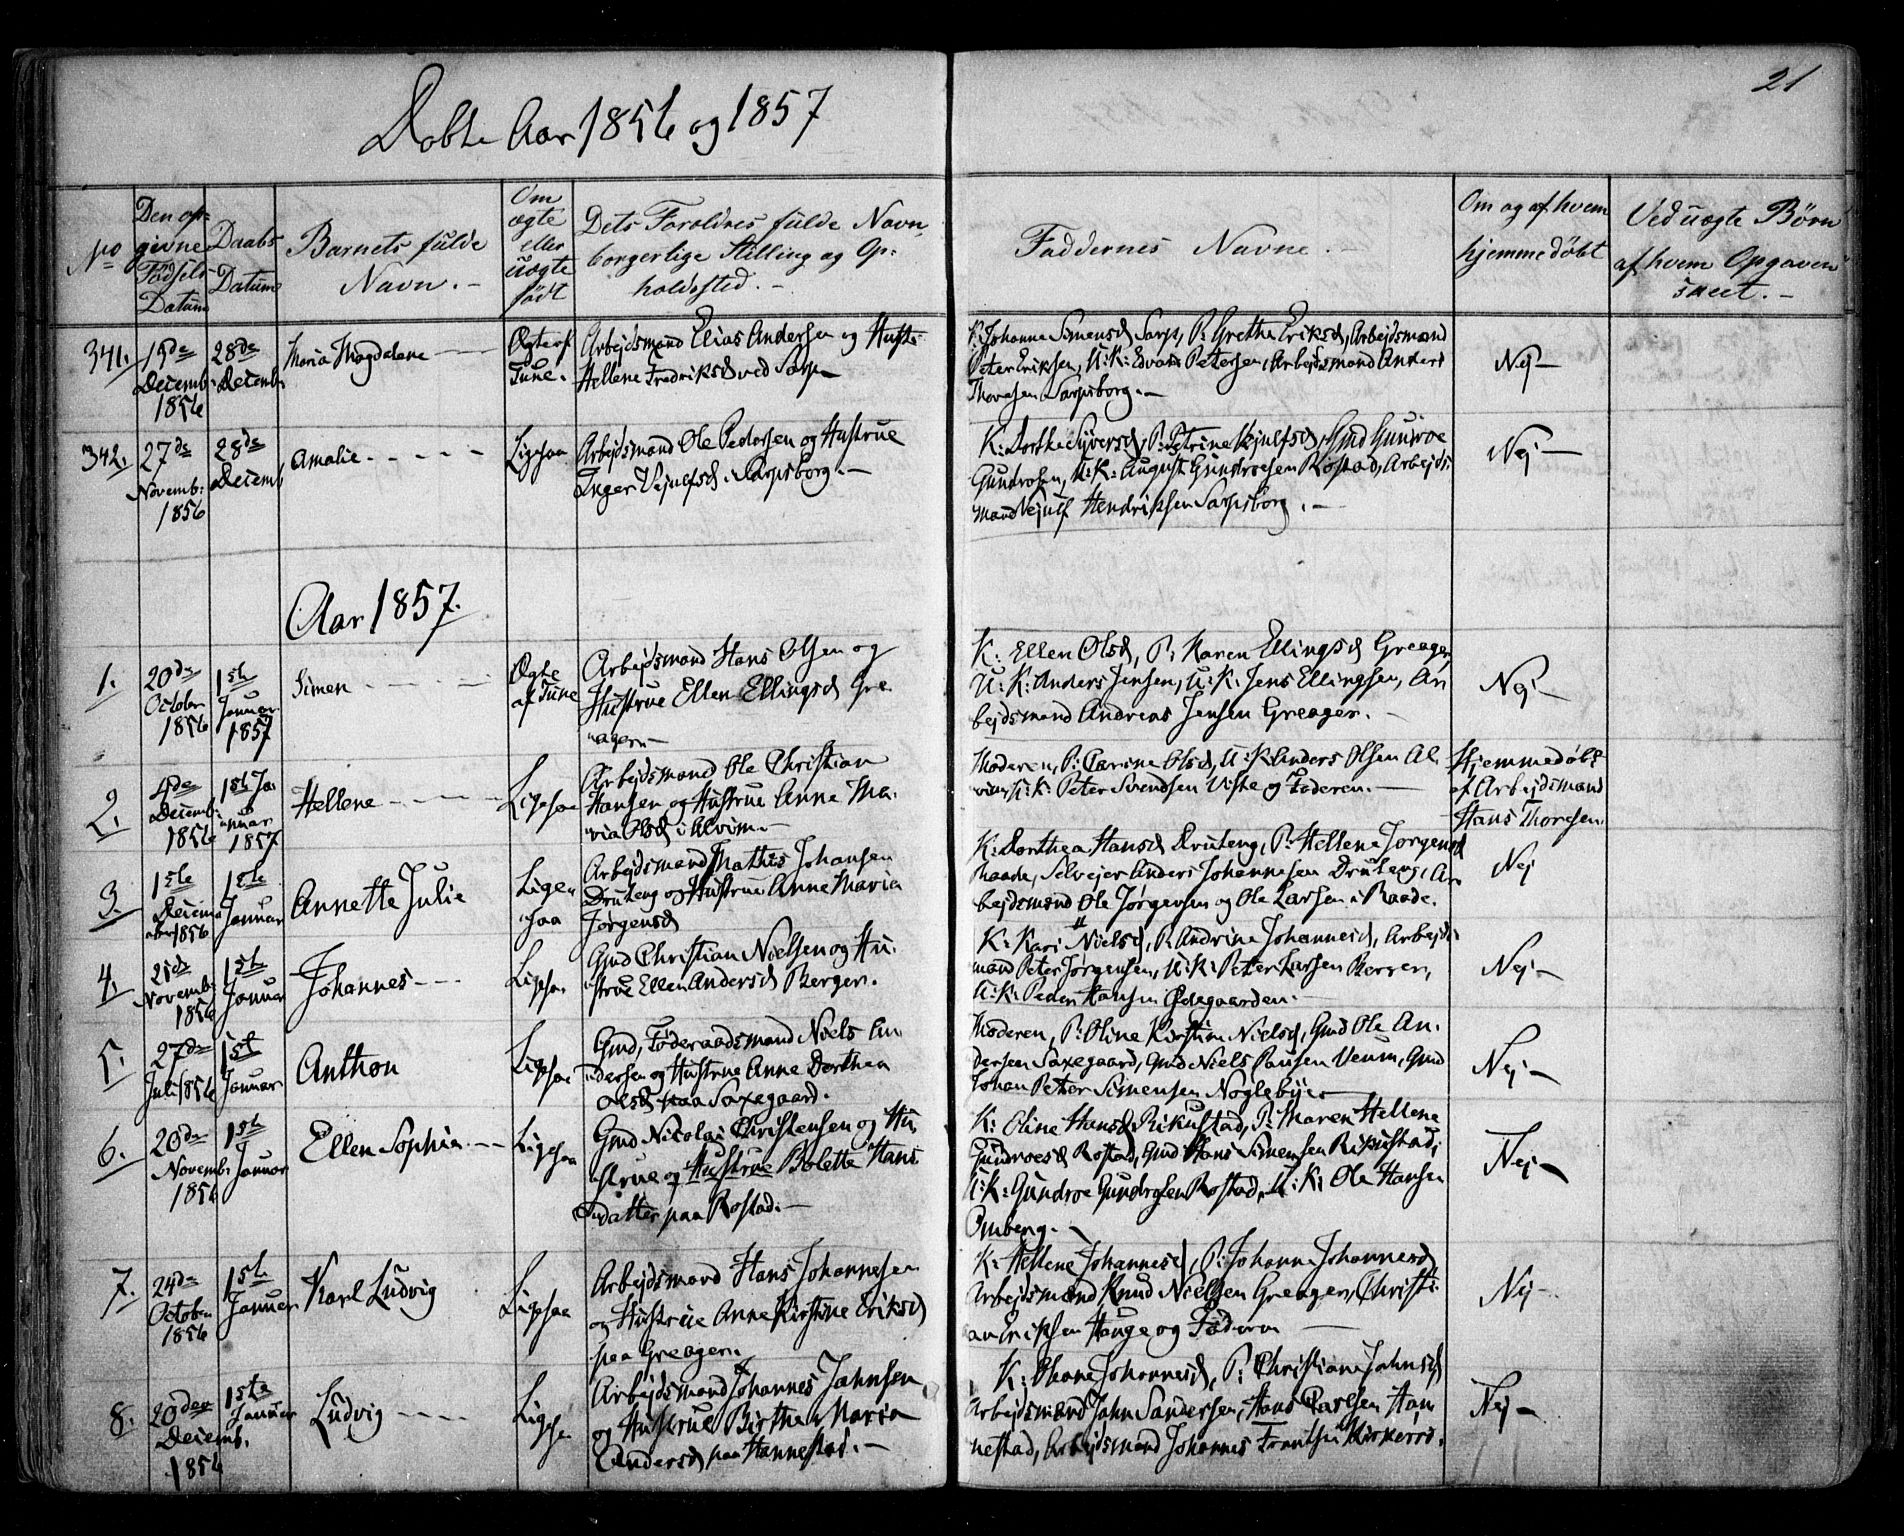 Døbte Aar 1856 og 1857
21
No
Den op=
givne
Födsels
Datum
Daabs
Datum
Barnets fulde
Navn. -
Om
ægte
eller
uægte
födt
Dets Forældres fulde Navn,
borgerlige Stilling og Op=
holdssted. -
Faddernes Navne. -
Om og af hvem
hjemmedøbt
Ved uægte Börn
af hvem Opgaven
skeet. -
341.
15de
Decemb:
1856
28de
Decemb.
Maria Magdalene
Ægte af
Tune.
Arbejdsmand Elias Andersen og Hustr:
Hellene Fredriksd ved Sarp
K: Johanne Simensd Sarp, P: Grethe Eriksd, Arbejdsmand
Peter Eriksen, U: K: Edvard Petersen, Arbejdsmand Anders
Thoresen Sarpsborg. -
Nej -
342.
27de
Novemb:
1856
28de
Decemb
Amalie
Ligesaa
Arbejdsmand Ole Pedersen og Hustrue
Inger Vejulfsd i Sarpsborg. -
K: Dorthe Syversd, P: Petrine Vejulfsd, Gmd Gundroe
Gundrosen, U: K: August Gundroesen Rostad, Arbejds
mand Vejulf Hendriksen Sarpsborg. -
Nej -
Aar 1857.
1.
20de
October
1856
1ste
Januar
1857
Simen
Ægte
af Tune
Arbejdsmand Hans Olsen og
Hustrue Ellen Ellingsd Gre
ager -
K: Ellen Olsd, P: Karen Ellingsd Greager,
U: K: Anders Jensen, U: K: Jens Ellingsen, Ar
bejdsmand Andreas Jensen Greager. -
Nej -
2.
4de
Decemb:
1856
1ste Ja
nuar
1857
Hellene
Ligesaa
Arbejdsmand Ole Christian
Hansen og Hustrue Anne Ma
ria Olsd i Alvim -
Moderen, P: Carine Olsd, U: K: Anders Olsen Al
vim, U: K: Peter Svendsen Viste og Faderen. -
Hjemmedøbt
af Arbejdsmand
Hans Thoresen.
3.
1ste
Decem
ber 1856
1ste
Januar
Annette Julie
Ligesaa
Arbejdsmand Mathis Johansen
Drueteng og Hustrue Anne Maria
Jørgensd
K: Dorthea Hansd Drueteng, P: Hellene Jørgensd
Raade, Selvejer Anders Johannesen Drueteng, Ar
bejdsmand Ole Jørgensen og Ole Larsen i Raade.
Nej
4.
21de
Novemb:
1856
1ste
Januar
Johannes
Ligesaa
Gmd Christian Nielsen og Hu
strue Ellen Andersd Berger.
K: Kari Nielsd, P: Andrine Johannesd, Arbejds
mand Peter Jørgensen, U: K: Petter Larsen Berger,
U: K: Peder Hansen Ødegaarden. -
Nej -
5.
27de
Juli 1856
1ste
Januar
Anthon
Ligesaa
Gmd, Føderaadsmand Niels An
dersen og Hustrue Anne Dorthea
Olsd paa Saxegaard.
Moderen, P: Oline Kirstine Nielsd, Gmd Ole An
dersen Saxegaard, Gmd Niels Paulsen Veum, Gmd
Johan Petter Simensen Nøglebye -
Nej -
6.
20de
Novemb:
1856
1ste
Januar
Ellen Sophia
Ligesaa
Gmd Nicolai Christensen og Hu
strue og Hustrue Bolette Hans
datter paa Rostad. -
K: Oline Hansd Rikustad, P: Maren Hellene
Gundroesd Rostad, Gmd Hans Simensen Rikustad,
U: K: Gundroe Gundrosen Rostad, U: K: Ole Hansen
Omberg. -
Nej -
7.
24de
October
1856
1ste
Januar
Karl Ludvig
Ligesaa
Arbejdsmand Hans Johannesen
og Hustrue Anne Kirstine Eriksd
paa Greager.
K: Hellene Johannesd, P: Johanne Johannesd
Arbejdsmand Knud Nielsen Greager, Christi
an Eriksen Hauge og Faderen -
Nej -
8.
20de
Decemb.
1856
1ste
Januar
Ludvig
Ligesaa
Arbejdsmand Johannes Jahnsen
og Hustrue Birthe Maria
Andersd paa Hannestad. -
K: Johannesd, P: Christiane Jahnsd
Arbejdsmand Jahn Sandersen, Hans Carlsen Han
nestad, Arbejdsmand Johannes Frantsen
Nej -